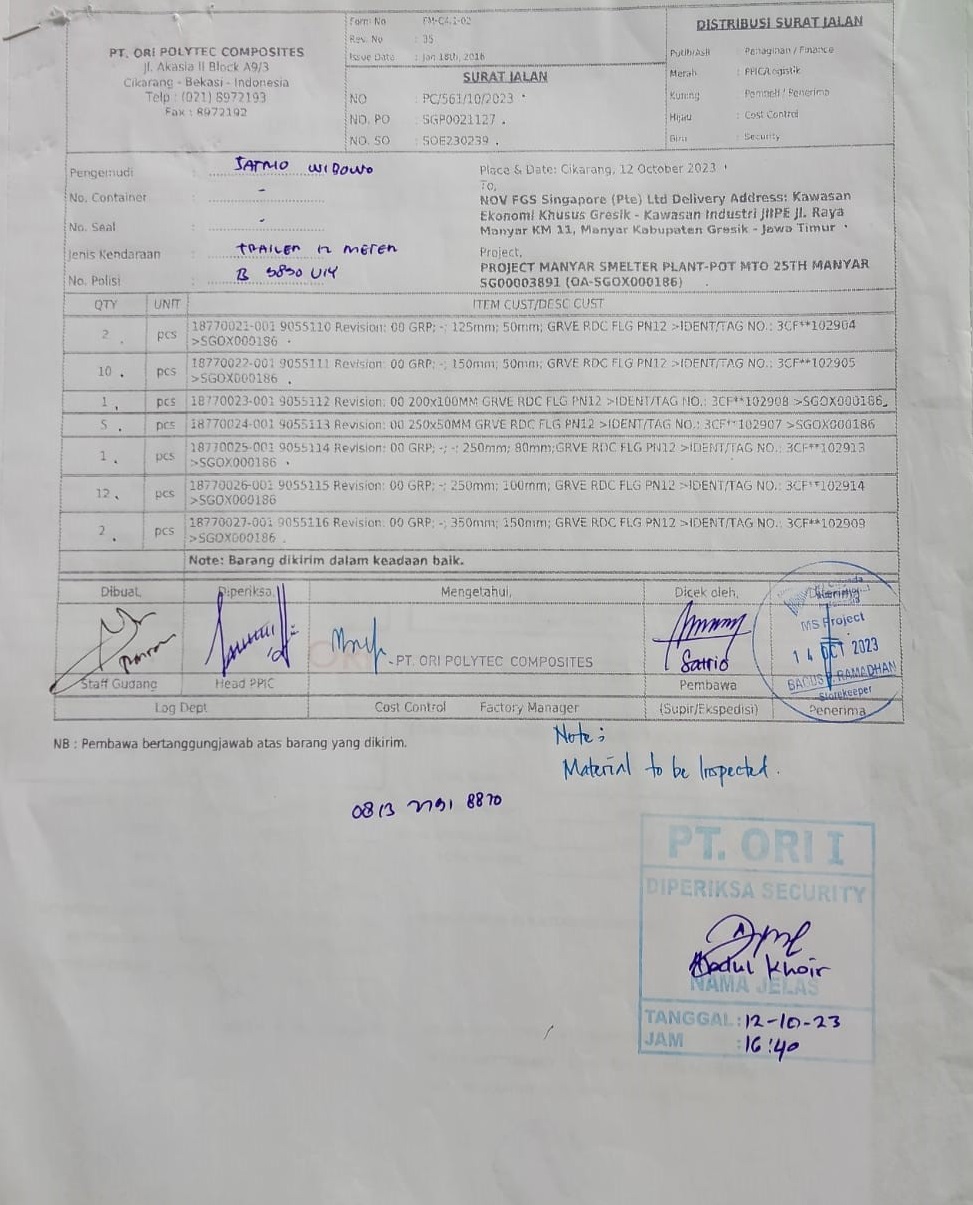 PT. ORI POLYTEC COMPOSITES
Jl. Akasia II Block A9/3
Cikarang - Bekasi - Indonesia
Telp : (021) 8972193
Fax : 8972192
Form No : FM-C4.2-02
Rev. No : 35
Issue Date : Jan 18th, 2016
SURAT JALAN
NO : PC/561/10/2023
NO. PO : SGP0021127
NO. SO : SOE230239
DISTRIBUSI SURAT JALAN
Putih/Asli : Penagihan / Finance
Merah : PPIC/Logistik
Kuning : Pembeli / Penerima
Hijau : Cost Control
Biru : Security
Pengemudi : SATRIO WIBOWO
No. Container : -
No. Seal : -
Jenis Kendaraan : TRAILER 12 METER
No. Polisi : B
Place & Date: Cikarang, 12 October 2023
To,
NOV FGS Singapore (Pte) Ltd Delivery Address: Kawasan
Ekonomi Khusus Gresik - Kawasan Industri JIIPE Jl. Raya
Manyar KM 11, Manyar Kabupaten Gresik - Jawa Timur
Project,
PROJECT MANYAR SMELTER PLANT-POT MTO 25TH MANYAR
SG00003891 (OA-SGOX000186)
QTY UNIT ITEM CUST/DESC CUST
2 pcs 18770021-001 9055110 Revision: 00 GRP; -; 125mm; 50mm; GRVE RDC FLG PN12 >IDENT/TAG NO.: 3CF**102904
>SGOX000186
10 pcs 18770022-001 9055111 Revision: 00 GRP; -; 150mm; 50mm; GRVE RDC FLG PN12 >IDENT/TAG NO.: 3CF**102905
>SGOX000186
1 pcs 18770023-001 9055112 Revision: 00 200x100MM GRVE RDC FLG PN12 >IDENT/TAG NO.: 3CF**102908 >SGOX000186
5 pcs 18770024-001 9055113 Revision: 00 250x50MM GRVE RDC FLG PN12 >IDENT/TAG NO.: 3CF**102907 >SGOX000186
1 pcs 18770025-001 9055114 Revision: 00 GRP; -; -; 250mm; 80mm;GRVE RDC FLG PN12 >IDENT/TAG NO.: 3CF**102913
>SGOX000186
12 pcs 18770026-001 9055115 Revision: 00 GRP; -; 250mm; 100mm; GRVE RDC FLG PN12 >IDENT/TAG NO.: 3CF**102914
>SGOX000186
2 pcs 18770027-001 9055116 Revision: 00 GRP; -; 350mm; 150mm; GRVE RDC FLG PN12 >IDENT/TAG NO.: 3CF**102909
>SGOX000186
Note: Barang dikirim dalam keadaan baik.
Dibuat, Diperiksa, Mengetahui, Dicek oleh, Diterima
MS Project
14 OCT 2023
BAGUS RAMADHAN
Storekeeper
PT. ORI POLYTEC COMPOSITES
Satrio
Staff Gudang Head PPIC Pembawa
Log Dept Cost Control Factory Manager (Supir/Ekspedisi) Penerima
NB : Pembawa bertanggungjawab atas barang yang dikirim.
Note :
Material to be Inspected.
PT. ORI I
DIPERIKSA SECURITY
Abdul Khoir
NAMA JELAS
TANGGAL : 12-10-23
JAM : 16:40